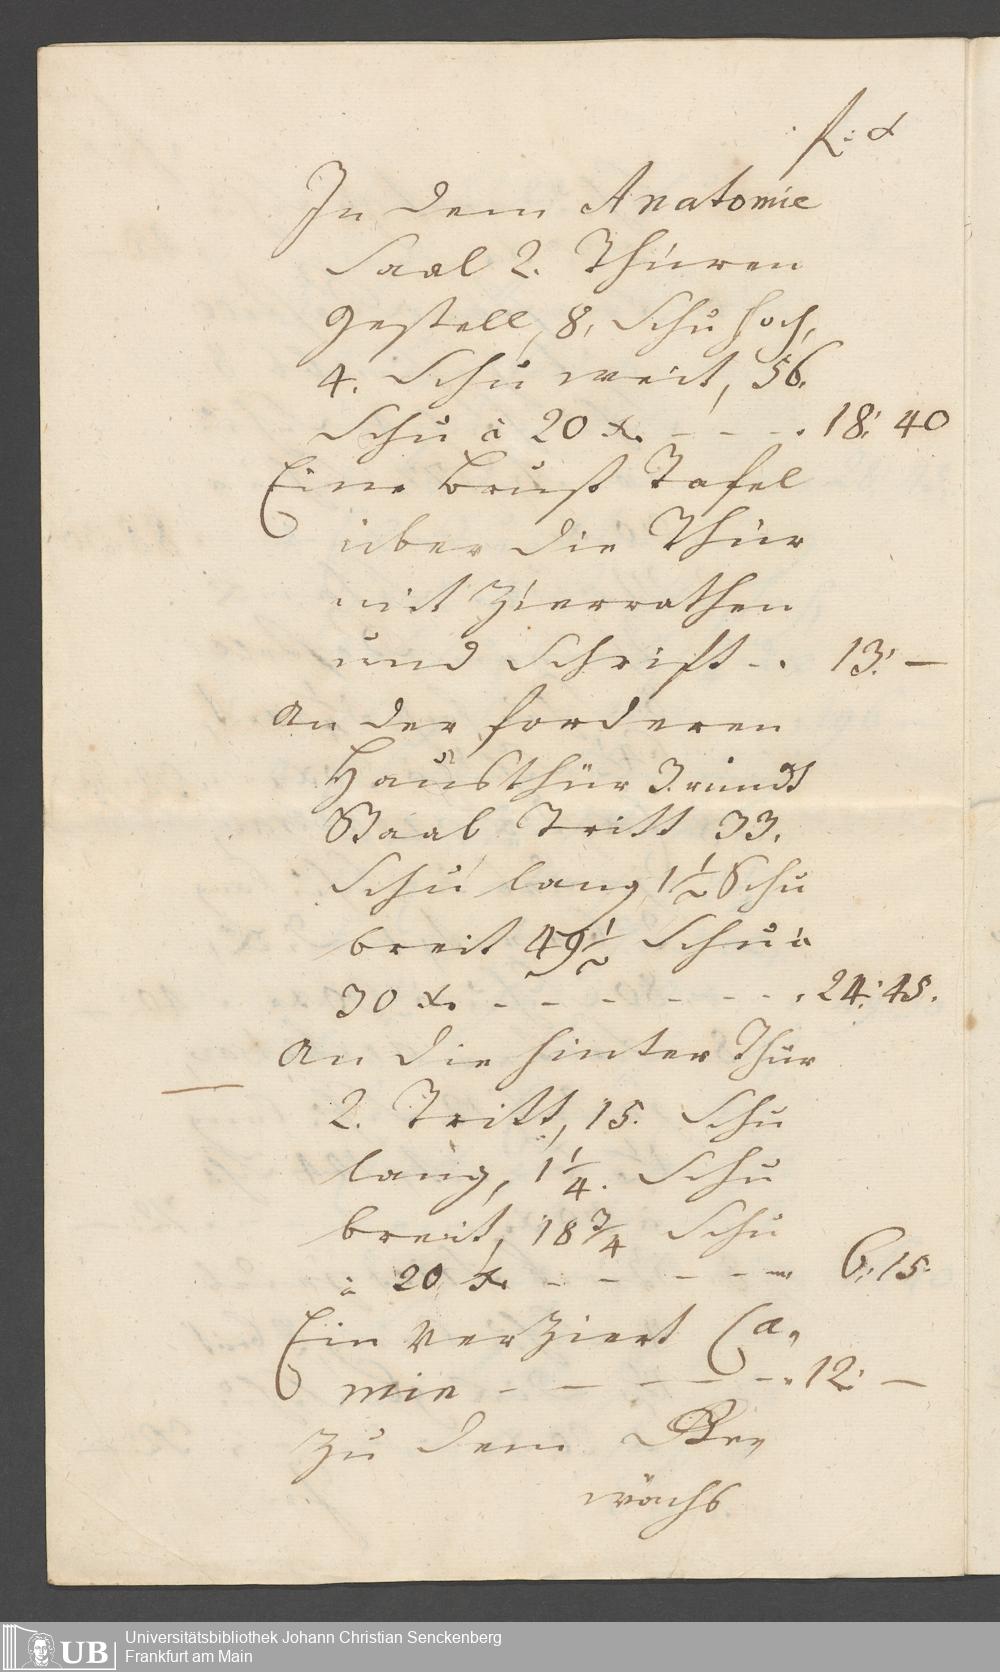 f: d
In dem Anatomie
Saal 2. Thüren
gestell, 8, Schu hoch,
4. Schu weit, 56.
Schu à 20 x. - - - . 18: 40
Eine Brust Tafel
über die Thür
mit Zierrathen
und Schrift - . 13: —
an der forderen
Hausthür 3. rundt
Staab Tritt 33.
Schu lang 1 1/2 Schu
breit 49 1/2 Schu à
30 x. - - - - - - . 24: 45.
an die hinter Thür
2. Tritt, 15. Schu
lang, 1 1/4. Schu
breit, 18 3/4 Schu
à 20 x. - - - - - 6: 15.
Ein verziert Ca,
min - - - - - . 12: —
zu dem Ge,
wächs
UB
Universitätsbibliothek Johann Christian Senckenberg
Frankfurt am Main